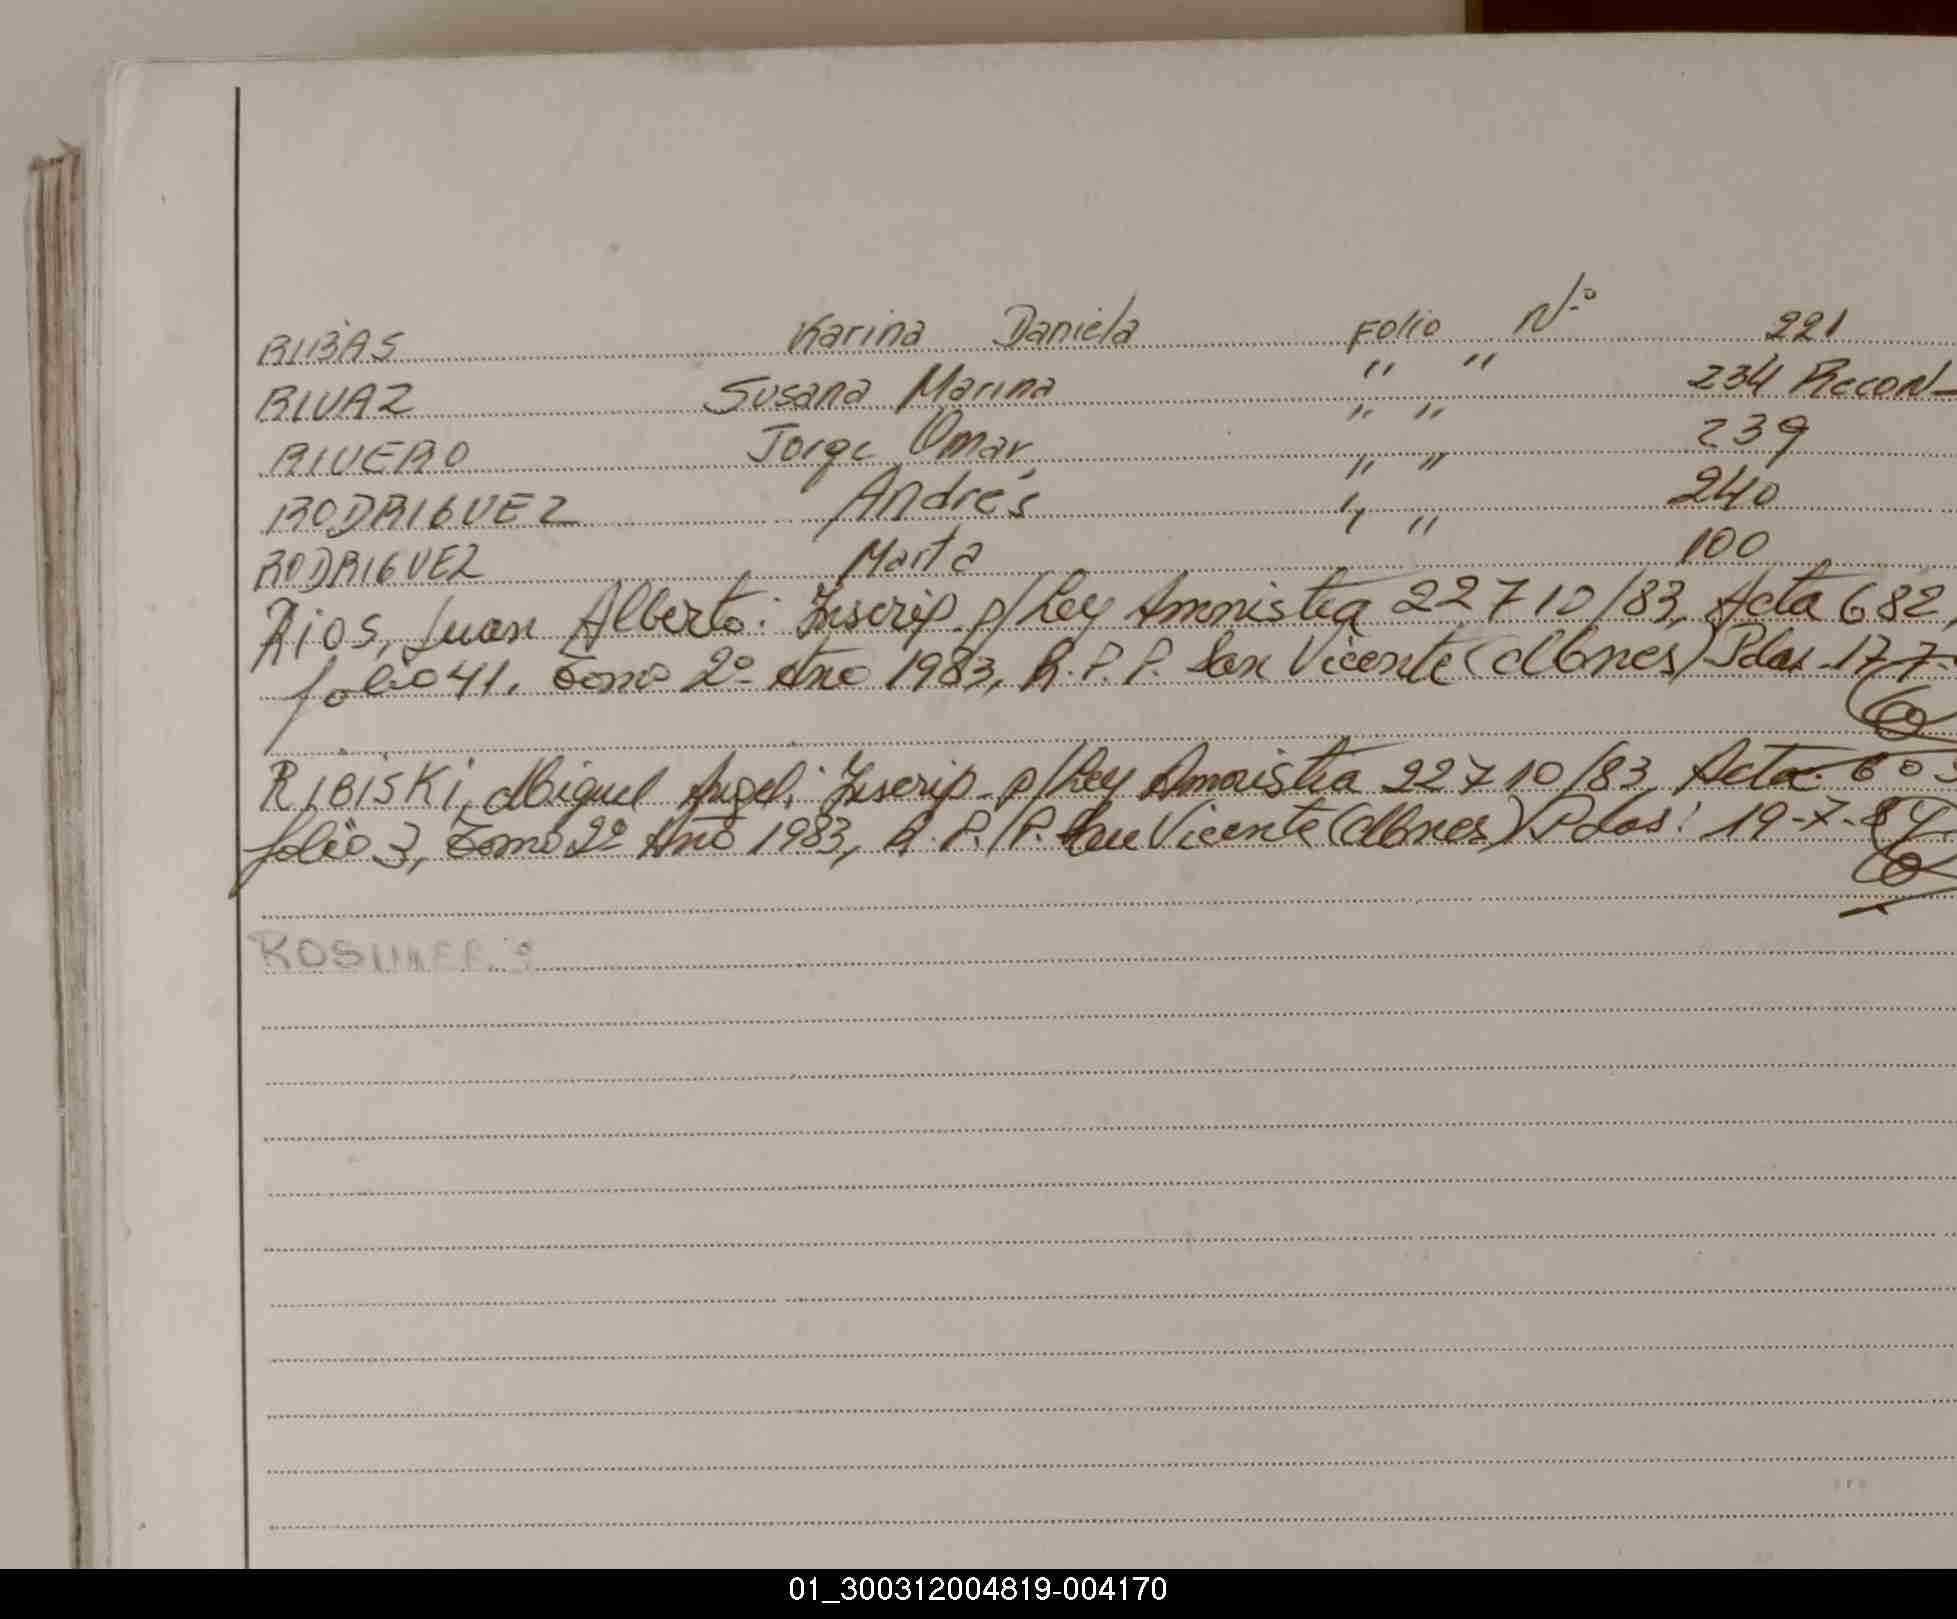 RIBAS Karina Daniela Folio Nº 221
RIVAZ Susana Marina " " 234 Recon-
RIVERO Jorge Omar " " 239
RODRIGUEZ Andrés " " 240
RODRIGUEZ Marta " " 100
RIOS, Juan Alberto: Inscrip. p/Ley Amnistia 22710/83, Acta 682,
folio 41, Tomo 2º Año 1983, R.P.P. San Vicente (Mnes) Pdas. 17-7-
RIBISKI, Miguel Angel: Inscrip. p/Ley Amnistia 22710/83, Acta 603
folio 3, Tomo 2º Año 1983, R.P.P. San Vicente (Mnes) Pdas: 19-7-84
01_300312004819-004170